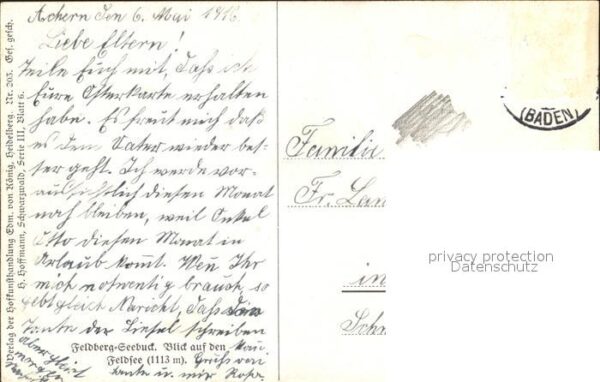 Achern den 6. Mai 1916
Liebe Eltern!
Teile Euch mit, daß ich
Eure Osterkarte erhalten
habe. Es freut mich daß
es dem Vater wieder bes-
ser geht. Ich werde vor-
aussichtlich diesen Monat
noch bleiben, weil Onkel
Otto diesen Monat in
Urlaub kommt. Wen Ihr
mich notwendig braucht, so
gebt gleich Naricht, daß die
Tante der Liesel schreiben
kan
Gruß von
Tante u. mir Rosa.
Aber gleich
Feldberg-Seebuck. Blick auf den
Feldsee (1113 m).
Verlag der Hofkunsthandlung Edm. von König, Heidelberg. Nr. 203. Ges. gesch.
H. Hoffmann, Schwarzwald, Serie III, Blatt 6.
(BADEN)
Familie
Fr.
in
privacy protection
Datenschutz